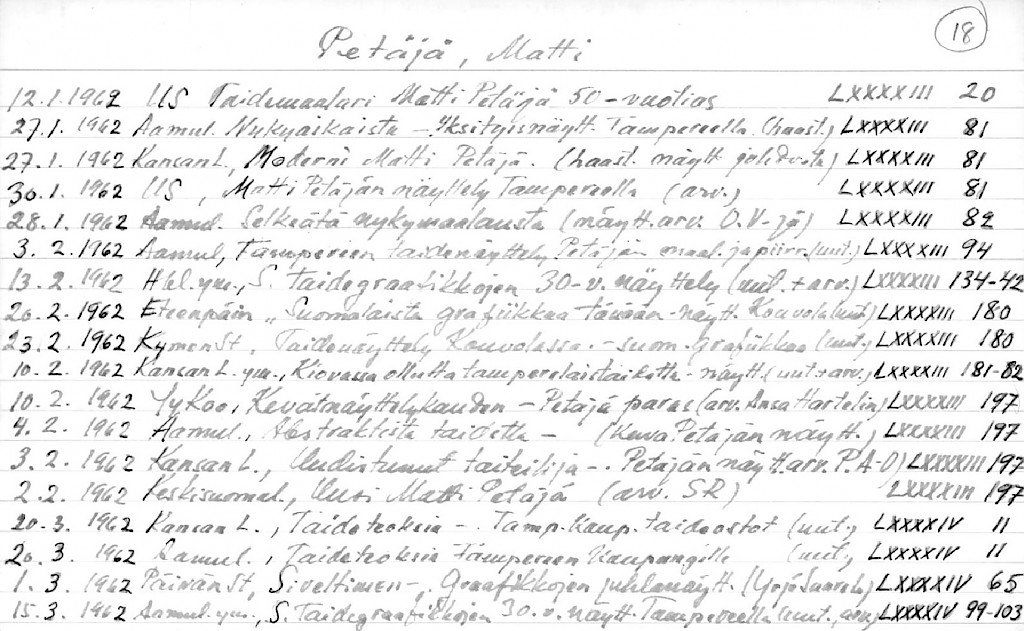 18
Petäjä, Matti
12.1.1962 US Taidemaalari Matti Petäjä 50-vuotias LXXXXIII 20
27.1. 1962 Aamul. Nykyaikaista - Yksityisnäytt. Tampereella (haast.) LXXXXIII 81
27.1. 1962 Kansan L., Moderni Matti Petäjä. (haast. näytt. johdosta) LXXXXIII 81
30.1. 1962 US, Matti Petäjän näyttely Tampereella (arv.) LXXXXIII 81
28.1. 1962 Aamul. Selkeätä nykymaalausta (näytt. arv. O.V-jä) LXXXXIII 82
3. 2. 1962 Aamul, Tampereen taidenäyttely Petäjän maal. ja piirr. (uut.) LXXXXIII 94
13.2. 1962 Hbl. ym., S. Taidegraafikkojen 30-v. näyttely (uut. + arv.) LXXXXIII 134-42
20.2. 1962 Eteenpäin, Suomalaista grafiikkaa tänään-näytt. Kouvola (uut.) LXXXXIII 180
23.2. 1962 Kymen St, Taidenäyttely Kouvolassa.- suom. grafiikkaa (uut.) LXXXXIII 180
10.2. 1962 Kansan L. ym., Kiovassa ollutta tamperelaistaidetta - näytt. (uut+arv.) LXXXXIII 181-82
10.2. 1962 Yykoo, Kevätnäyttelykauden - Petäjä paras (arv. Ansa Hartelin) LXXXXIII 197
4. 2. 1962 Aamul., Abstraktista taidetta - (kuva Petäjän näytt.) LXXXXIII 197
3. 2. 1962 Kansan L., Uudistunut taiteilija -. Petäjän näytt. arv. P.A-O) LXXXXIII 197
2.2. 1962 Keskisuomal., Uusi Matti Petäjä (arv. SR) LXXXXIII 197
20.3. 1962 Kansan L., Taideteoksia -. Tamp. kaup. taideostot (uut.) LXXXXIV 11
20. 3. 1962 Aamul., Taideteoksia Tampereen kaupungille (uut.) LXXXXIV 11
1. 3. 1962 Päivän St, Siveltimen -, Graafikkojen juhlanäytt. (Yrjö Saarel.) LXXXXIV 65
15.3. 1962 Aamul. ym., S. Taidegraafikkojen 30.v. näytt. Tampereella (uut., arv.) LXXXXIV 99-103